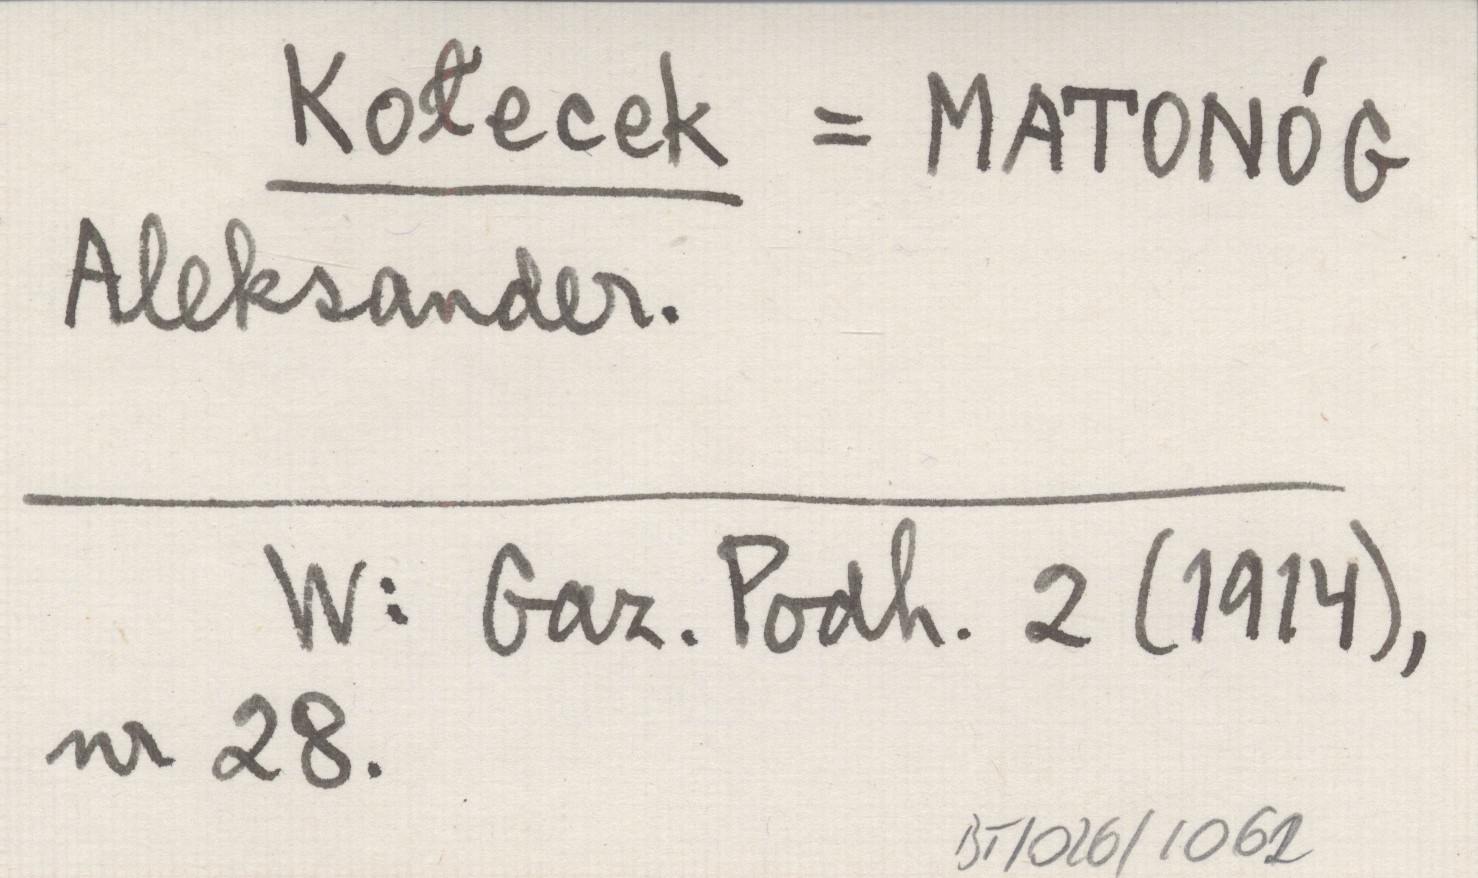 Kołecek = MATONÓG
Aleksander.
W: Gaz. Podh. 2 (1914),
nr 28.
BT/026/1062